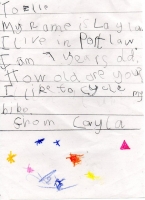 To Ella
My name is Layla.
I live in Portlaw.
I am 7 years old.
How old are you?
I like to cycle my
bike.
From Layla